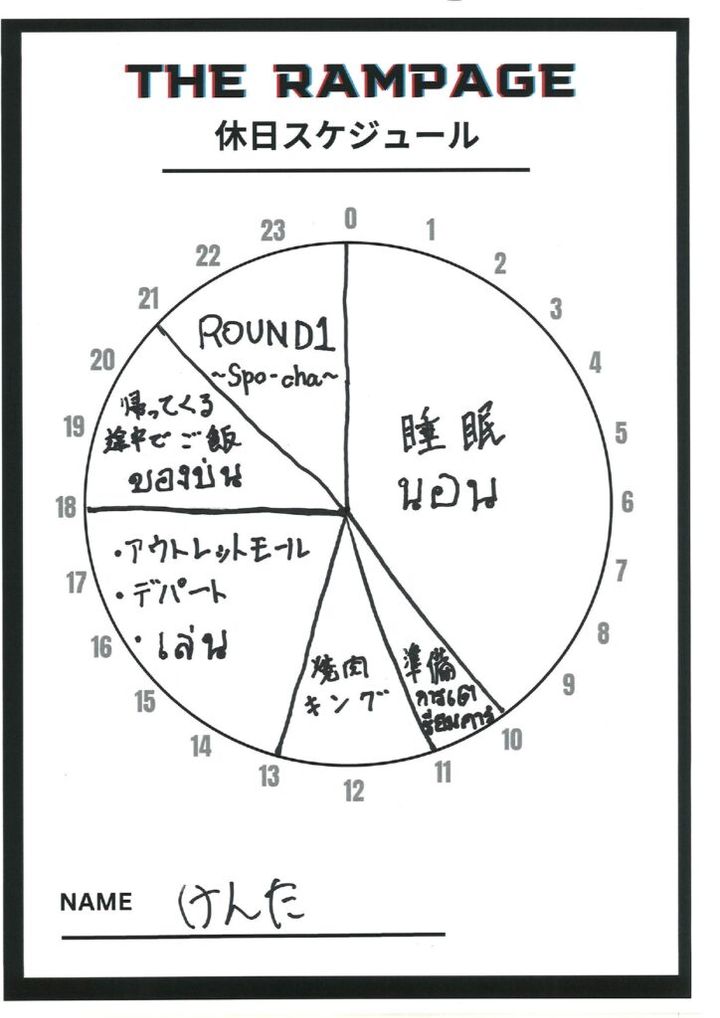 THE RAMPAGE
休日スケジュール
0
1
2
3
4
5
6
7
8
9
10
11
12
13
14
15
16
17
18
19
20
21
22
23
ROUND1
~Spo-cha~
睡眠
นอน
帰ってくる
途中でご飯
ของบ่น
・アウトレットモール
・デパート
・เล่น
焼肉
キング
準備
การเต
รียมการ
NAME けんた